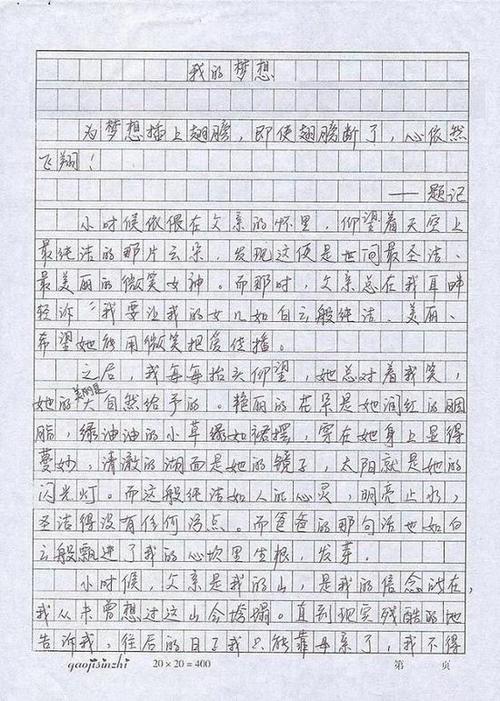 我的梦想
为梦想插上翅膀，即使翅膀断了，心依然
飞翔！
——题记
小时候依偎在父亲的怀里，仰望着天空上
最纯洁的那片云朵，发现这便是世间最圣洁、
最美丽的微笑女神。而那时，父亲总在我耳畔
轻诉“我要让我的女儿如白云般纯洁、美丽、
希望她能用微笑把爱传播。
之后，我每每抬头仰望，她总对着我笑，
她的美丽是大自然给予的。艳丽的花朵是她润红的胭
脂，绿油油的小草绿如裙摆，穿在她身上显得
曼妙，清澈的湖面是她的镜子，太阳就是她的
闪光灯。而这般纯洁如人的心灵，明亮止水，
圣洁得没有任何污点。而爸爸的那句话也如白
云般飘进了我的心坎里生根，发芽。
小时候，父亲是我的山，是我的信念所在，
我从未曾想过这山会垮塌。直到现实残酷的地
告诉我，往后的日子我只能靠母亲了，我不得
gaojisinzhi 20×20=400 第 页